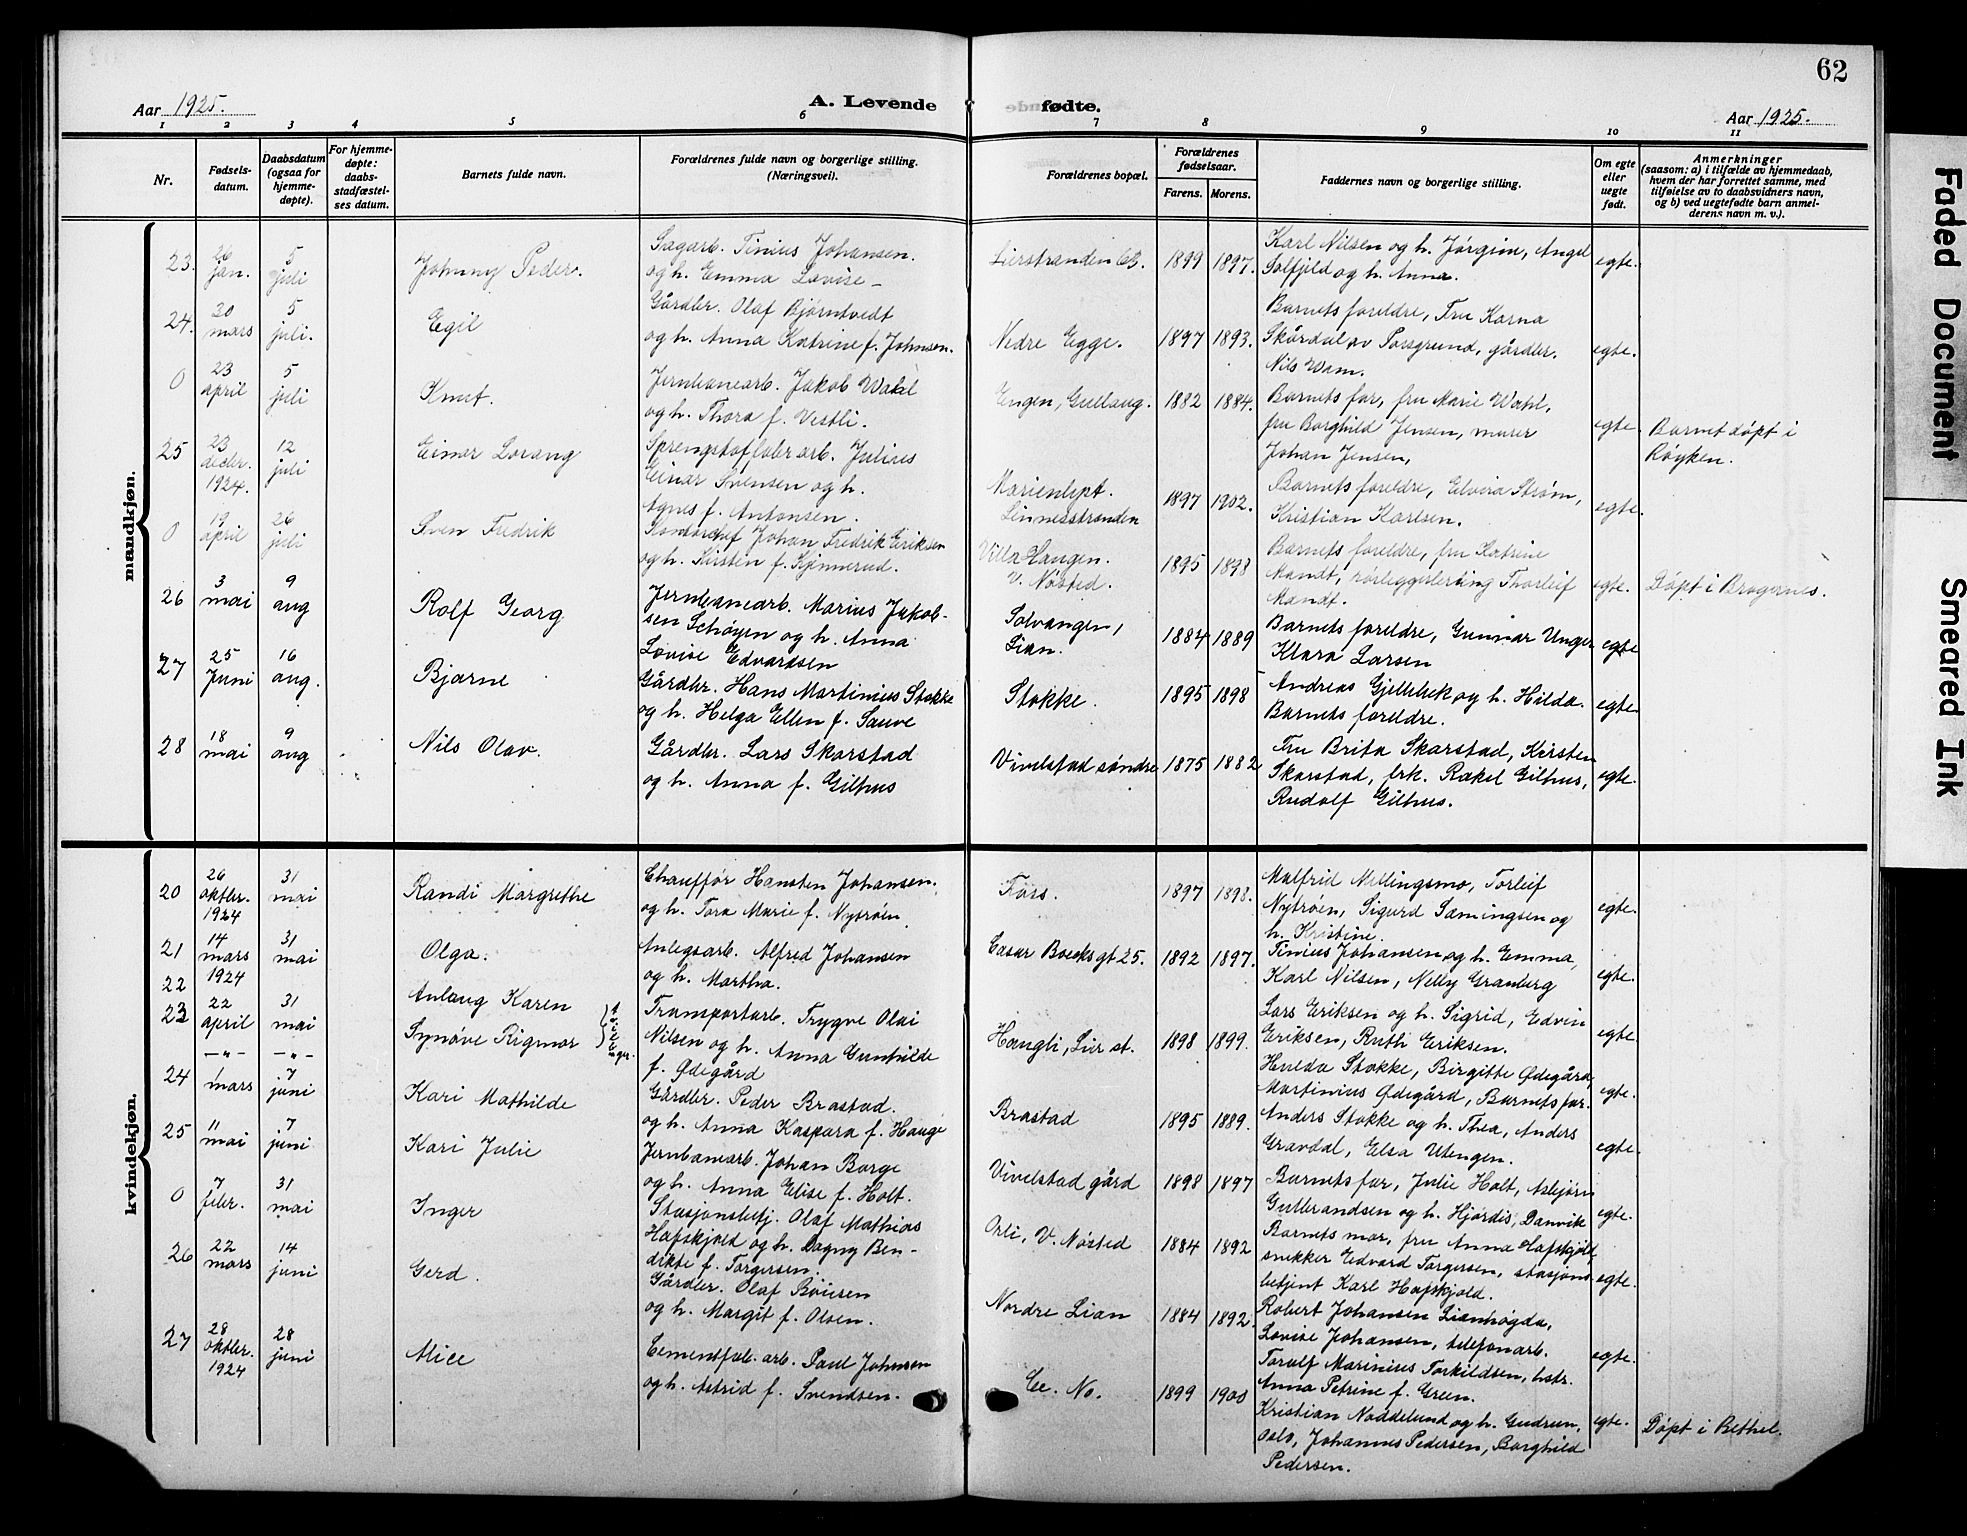 62
Aar 1925.
A. Levende fødte.
Aar 1925.
1 2 3 4 5 6 7 8 9 10 11
Nr.
Fødsels-
datum.
Daabsdatum
(ogsaa for
hjemme-
døpte).
For hjemme-
døpte:
daabs-
stadfæstel-
ses datum.
Barnets fulde navn.
Forældrenes fulde navn og borgerlige stilling.
(Næringsvei).
Forældrenes bopæl.
Forældrenes
fødselsaar.
Farens. Morens.
Faddernes navn og borgerlige stilling.
Om egte
eller
uegte
født.
Anmerkninger
(saasom: a) i tilfælde av hjemmedaab,
hvem der har forrettet samme, med
tilføielse av to daabsvidners navn,
og b) ved uegtefødte barn anmel-
derens navn m. v.).
mandkjøn.
23. 26 jan. 5 juli Johnny Peder.
Sagarb. Tinius Johansen.
og h. Emma Lovise –
Lierstranden 1899 1897.
Karl Nilsen og h. Jørgine, Angel
Solfjeld og h. Anna.
egte.
24. 20 mars 5 juli. Egil
Gårdbr. Olaf Bjørntvedt
og h. Anna Katrine f. Johnsen.
Nedre Egge. 1897 1893.
Barnets foreldre, Fru Karna
Skårdal av Porsgrund, gårdbr.
Nils Wam.
egte.
0 23 april 5 juli Knut.
Jernbanearb. Jakob Wahl
og h. Thora f. Vestli.
Engen, Gullaug. 1882 1884.
Barnets far, fru Marie Wahl,
fru Borghild Jensen, murer
Johan Jensen,
egte.
Barnet døpt i
Røyken.
25 23 decbr. 1924. 12 juli Einar Lorang
Sprengstoffabr arb. Julius
Einar Svensen og h.
Agnes f. Antonsen.
Marienlyst.
Linnesstranden
1897 1902.
Barnets foreldre, Elvira Strøm,
Kristian Karlsen.
egte.
0 19 april 26 juli Sven Fredrik
Kontorchef Johan Fredrik Eriksen
og h. Kirsten f. Kjinnerud.
Villa Haugen.
v. Nøsted.
1895 1898
Barnets foreldre, fru Katrine
Mandt, rørleggerlerling Thorleif
Mandt.
egte. Døpt i Bragernes.
26 3 mai 9 aug Rolf Georg
Jernbanearb. Marius Jakob-
sen Schøyen og h. Anna
Lovise Edvardsen
Solvangen,
Lian.
1884 1889
Barnets foreldre, Gunnar Unger
Klara Larsen
egte
27 25 Juni 16 aug. Bjarne
Gårdbr. Hans Martinius Stokke
og h. Helga Ellen f. Sauve
Stokke. 1895 1898
Andreas Gjellebek og h. Hilda.
Barnets foreldre.
egte
28 18 mai 9 aug Nils Olav.
Gårdbr. Lars Skarstad
og h. Anna f. Gilhus
Vivelstad søndre 1875 1882
Fru Brita Skarstad, Kirsten
Skarstad, frk. Rakel Gilhus,
Rudolf Gilhus.
egte.
kvindekjøn.
20 26 oktbr. 1924 31 mai Randi Margrethe
Chauffør Hansten Johansen.
og h. Tora Marie f. Nytrøen
Foss. 1897 1898.
Malfrid Nellingsmo, Torleif
Nytrøen, Sigurd Samingsen og
h. Kristine.
egte.
21 14 mars 1924 31 mai Olga.
Anlegsarb. Alfred Johansen
og h. Martha.
Cæsar Boecks gt 25. 1892 1897.
Tinius Johansen og h. Emma,
Karl Nilsen, Nelly Granberg
egte.
22
23 22 april 31 mai Anlaug Karen
–"– –"– Synøve Rigmor
Transportarb. Trygve Olai
Nilsen og h. Anna Gunhilde
f. Ødegård
Haugli, Lier st. 1898 1899.
Lars Eriksen og h. Sigrid, Edvin
Eriksen, Ruth Eriksen.
egte
24 mars 7 juni Kari Mathilde
Gårdbr. Peder Brastad.
og h. Anna Kaspara f. Hauge
Brastad 1895 1889.
Hulda Stokke, Birgitte Ødegård,
Martinius Ødegård, Barnets far.
egte.
25 11 mai 7 juni Kari Julie
Jernbanearb. Johan Borge
og h. Anna Elise f. Holt.
Vivelstad gård 1898 1897
Anders Stokke og h. Thea, Anders
Gravdal, Elsa Utengen.
egte.
Barnets far, Julie Holt, Asbjørn
Gulbrandsen og h. Hjørdis, Danvik
egte.
0 7 febr. 31 mai Inger
Stasjonsbetj. Olaf Mathias
Hafskjold og h. Dagny Ben-
dikte f. Torgersen.
Orli, V. Nøsted 1884 1892
Barnets mor, fru Anna Hafskjold,
snekker Edvard Torgersen, stasjons-
betjent Karl Hafskjold.
egte.
26 22 mars 14 juni Gerd.
Gårdbr. Olaf Böusen
og h. Margit f. Olsen.
Nordre Lian 1884 1892.
Robert Johansen Lianhøgda,
Lovise Johansen, telefonarb.
Toralf Marinius Torkildsen, hstr.
Anna Petrine f. Green.
egte.
27 28 oktbr. 1924 28 juni Alice
Cementfab. arb. Paul Johnsen
og h. Astrid f. Svendsen.
Ee. No. 1899 1900
Kristian Naddelund og h. Gudrun,
Oslo, Johannes Pedersen, Borghild
Pedersen.
egte. Døpt i Bethel.
Faded Document
Smeared Ink